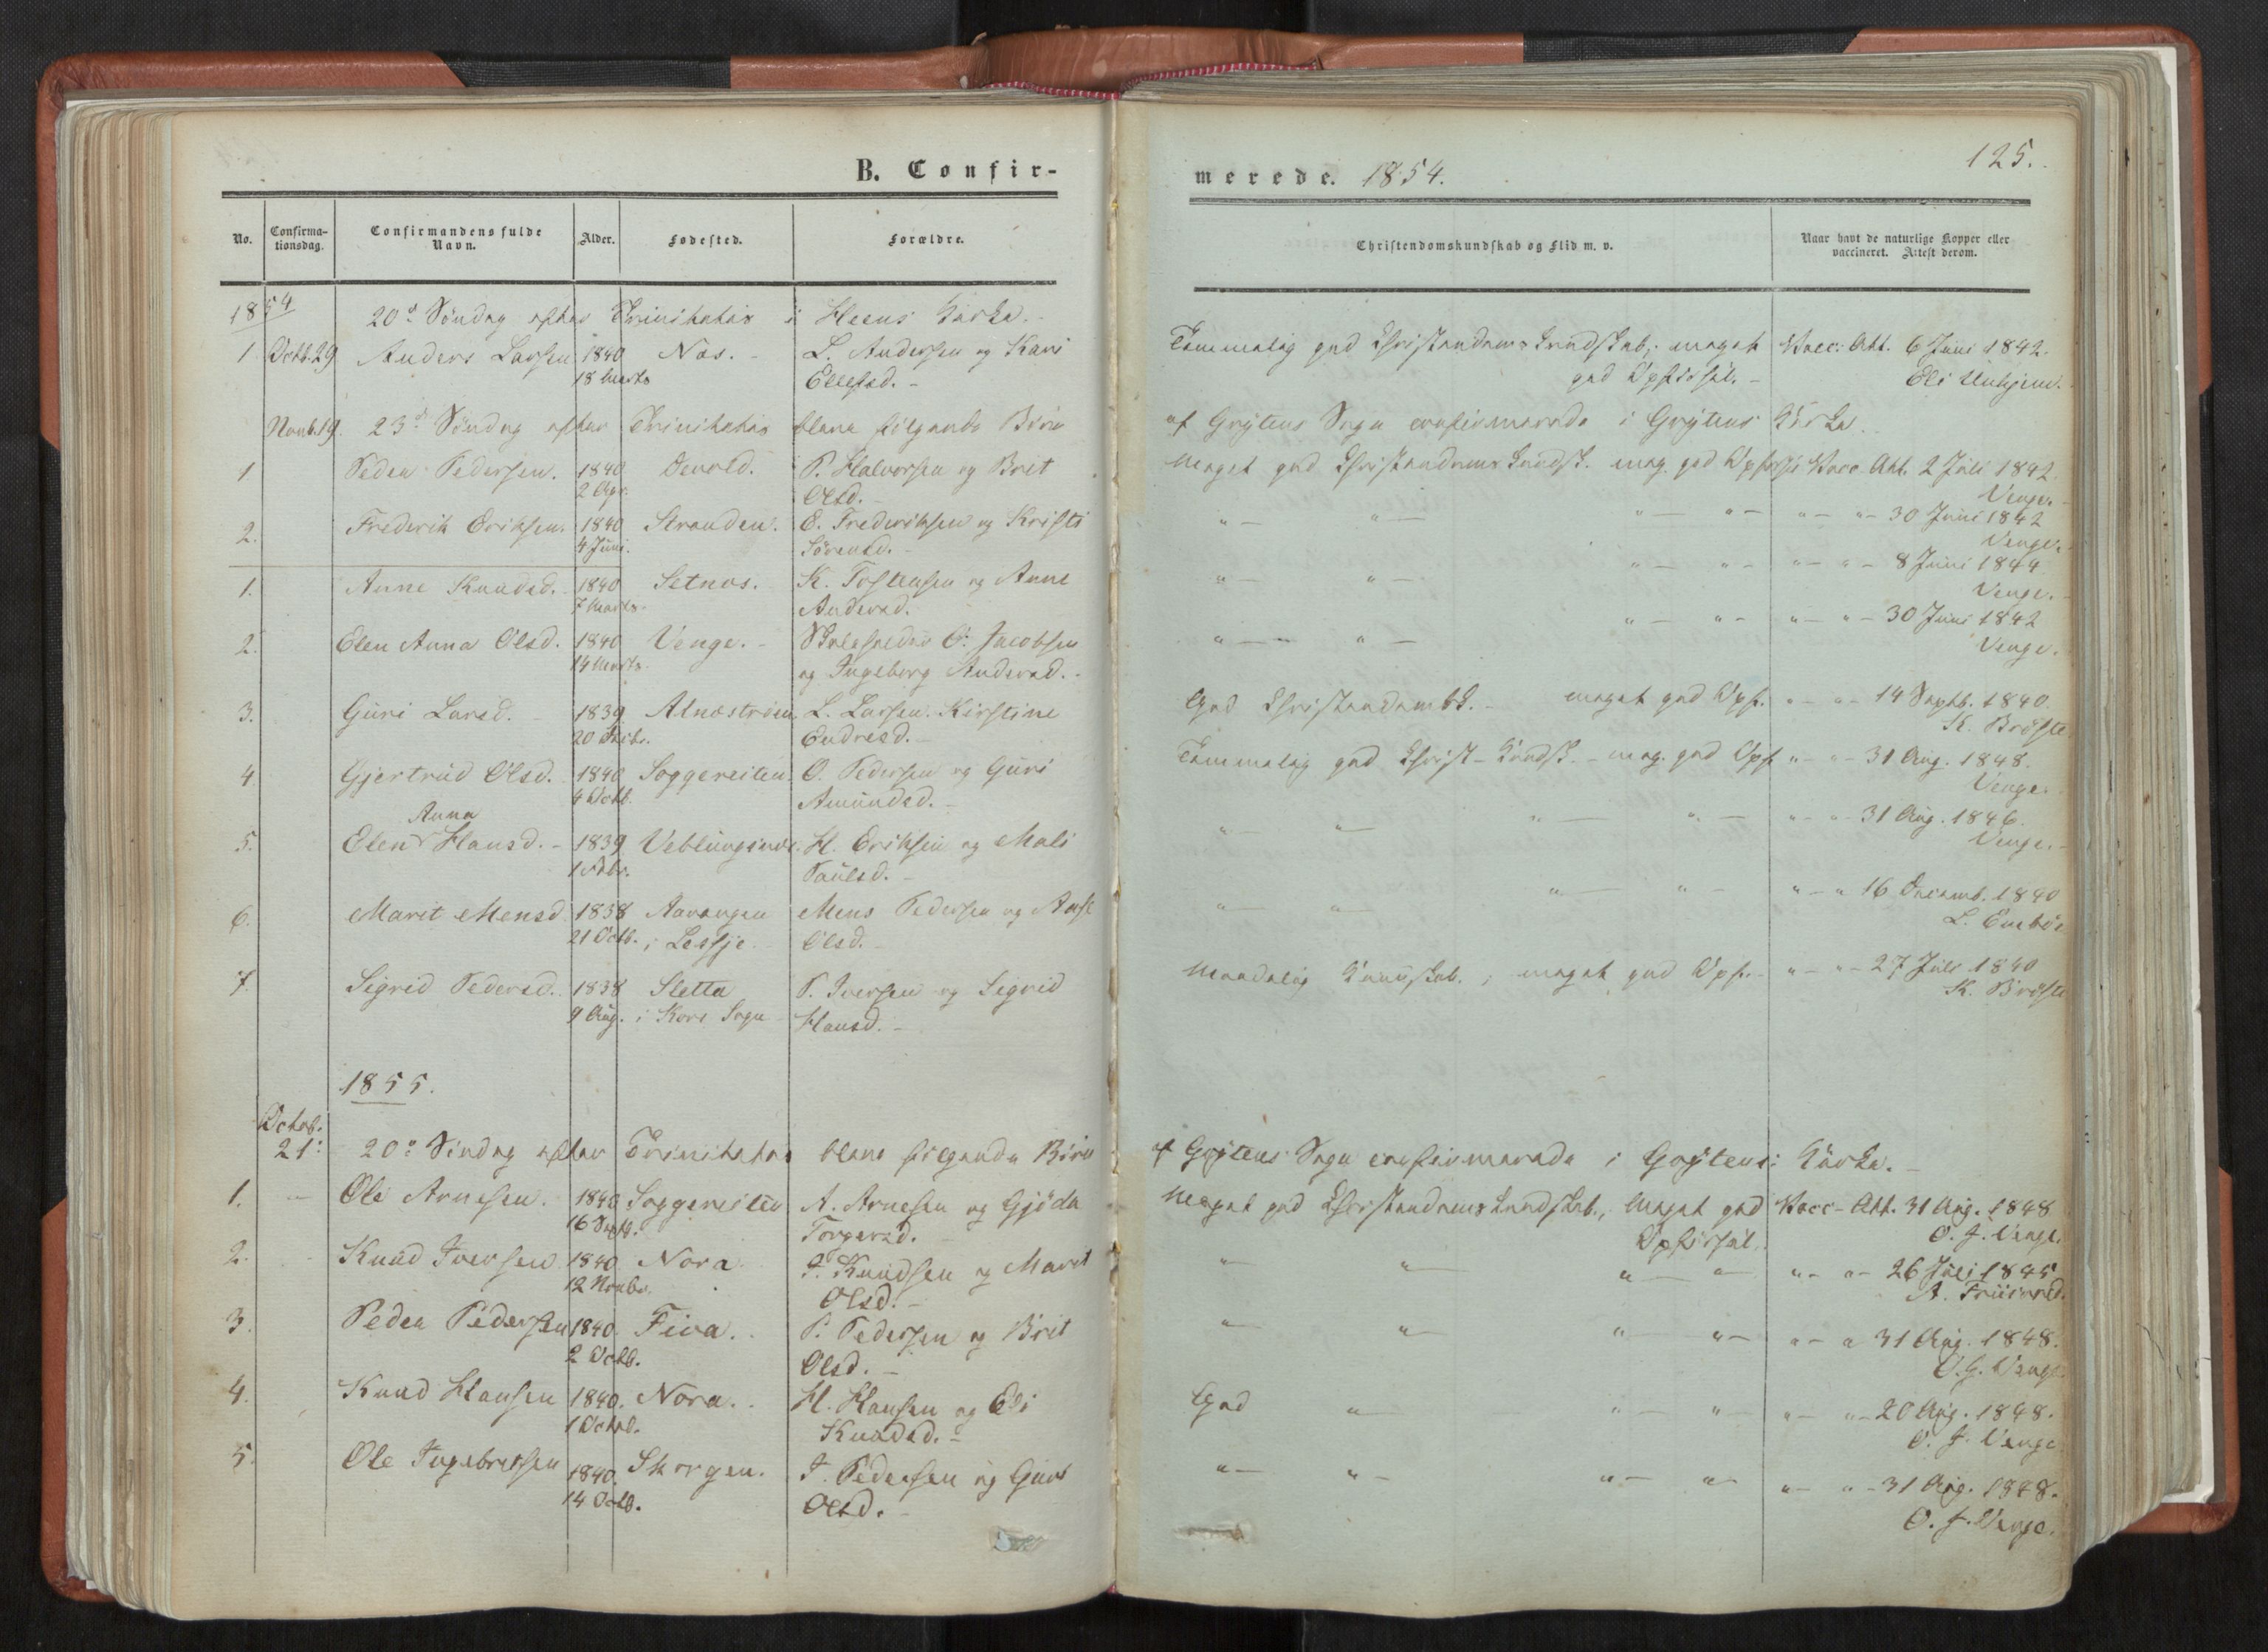 B. Confir-
No. Confirma-tionsdag. Confirmandens fulde Navn. Alder. Fødested. Forældre.
1854
20de Søndag efter Trinitatis i Heens Kirke.
1 Octb. 29 Anders Larsen 1840 Næs. L. Andersen og Kari
18 Marts Ellefsd.
Novb. 19. 23de Søndag efter Trinitatis bleve følgende Børn
1 Peder Pedersen. 1840 Devold. P. Halvorsen og Brit
2 Apr. Olsd.
2. Frederik Eriksen. 1840 Stranden. E. Frederiksen og Kristi
4 Juni. Sørensd.
1. Anne Knudsd. 1840 Setnæs. K. Tostensen og Anne
7 Marts Andersd.
2. Elen Anna Olsd. 1840 Venge. O. Jacobsen
14 Marts. og Ingeborg Andersd.
3. Guri Larsd. 1839 L. Larsen. Kirstine
20 Endresd.
4. Gjertrud Olsd. 1840 Soggereiten. O. Pedersen og Guri
4 Octb. Amundsd.
Anna
5. Elen Hansd. 1839 Veblungsnæs. H. Eriksen og Mali
1 Paulsd.
6. Marit Monsd. 1838 Mons Pedersen og Anne
21 Octb. i Lessje. Olsd.
7. Sigrid Pedersd. 1838 Sletta P. Iversen og Sigrid
9 Aug. i Kors Sogn Hansd.
1855.
Octob.
21: 20de Søndag efter Trinitatis bleve følgende Børn
1. Ole Arnesen. 1840 Soggereiten A. Arnesen og Gjøda
16 Septb. Torgersd.
2. Knud Iversen 1840 Nora. I. Knudsen og Marit
12 Novbr. Olsd.
3. Peder Pedersen 1840. Fiva. P. Pedersen og Brit
2 Octb. Olsd.
4. Knud Hansen 1840. Nora. H. Hansen og Eli
1 Octob. Knudsd.
5. Ole Ingebretsen 1840. Skorgen. I. Pedersen og Guri
14 Octb. Olsd.
125.
merede. 1854.
Christendomskundskab og Flid m. v. Naar havt de naturlige Kopper eller vaccineret. Attest derom.
Temmelig god Christendoms Kundskab; meget Vacc: Att. 6 Juni 1842.
god Opførsel. Eli Unhjem.
af Grytens Sogn confirmerede i Grytens Kirke.
Meget god Christendoms Kundsk. meg. god Opførs. Vacc. Att. 2 Juli 1842
Venge.
"— "— "— "— "— "— 30 Juni 1842
Venge.
"— "— "— "— "— "— 8 Juni 1844
Venge.
"— "— "— "— "— "— 30 Juni 1842
Venge.
God Christendomsk. meget god Opf. "— "— 14 Septb. 1840.
K. Brøste
Temmelig god Christ- Kundsk.- meg. god Opf. "— "— 31 Aug. 1848.
Venge.
"— "— "— "— "— "— 31 Aug. 1846.
Venge.
"— "— "— "— "— " 16 Decemb. 1840
L. Enebøe
Maadelig Kundskab.; meget god Opf. "— "— 27 Juli 1840
K. Brøste
af Grytens Sogn confirmerede i Grytens: Kirke.
Meget god Christendoms Kundskab., Meget god Vacc- Att. 31 Aug. 1848
Opførsel. O. J. Venge.
"— "— "— "— "— "— 26 Juli 1845
"— "— "— "— "— " 31 Aug. 1848.
O. J. Venge
God "— "— "— "— "— 20 Aug. 1848.
O. J. Venge
"— "— "— "— "— "— 31 Aug. 1848.
O. J. Venge.